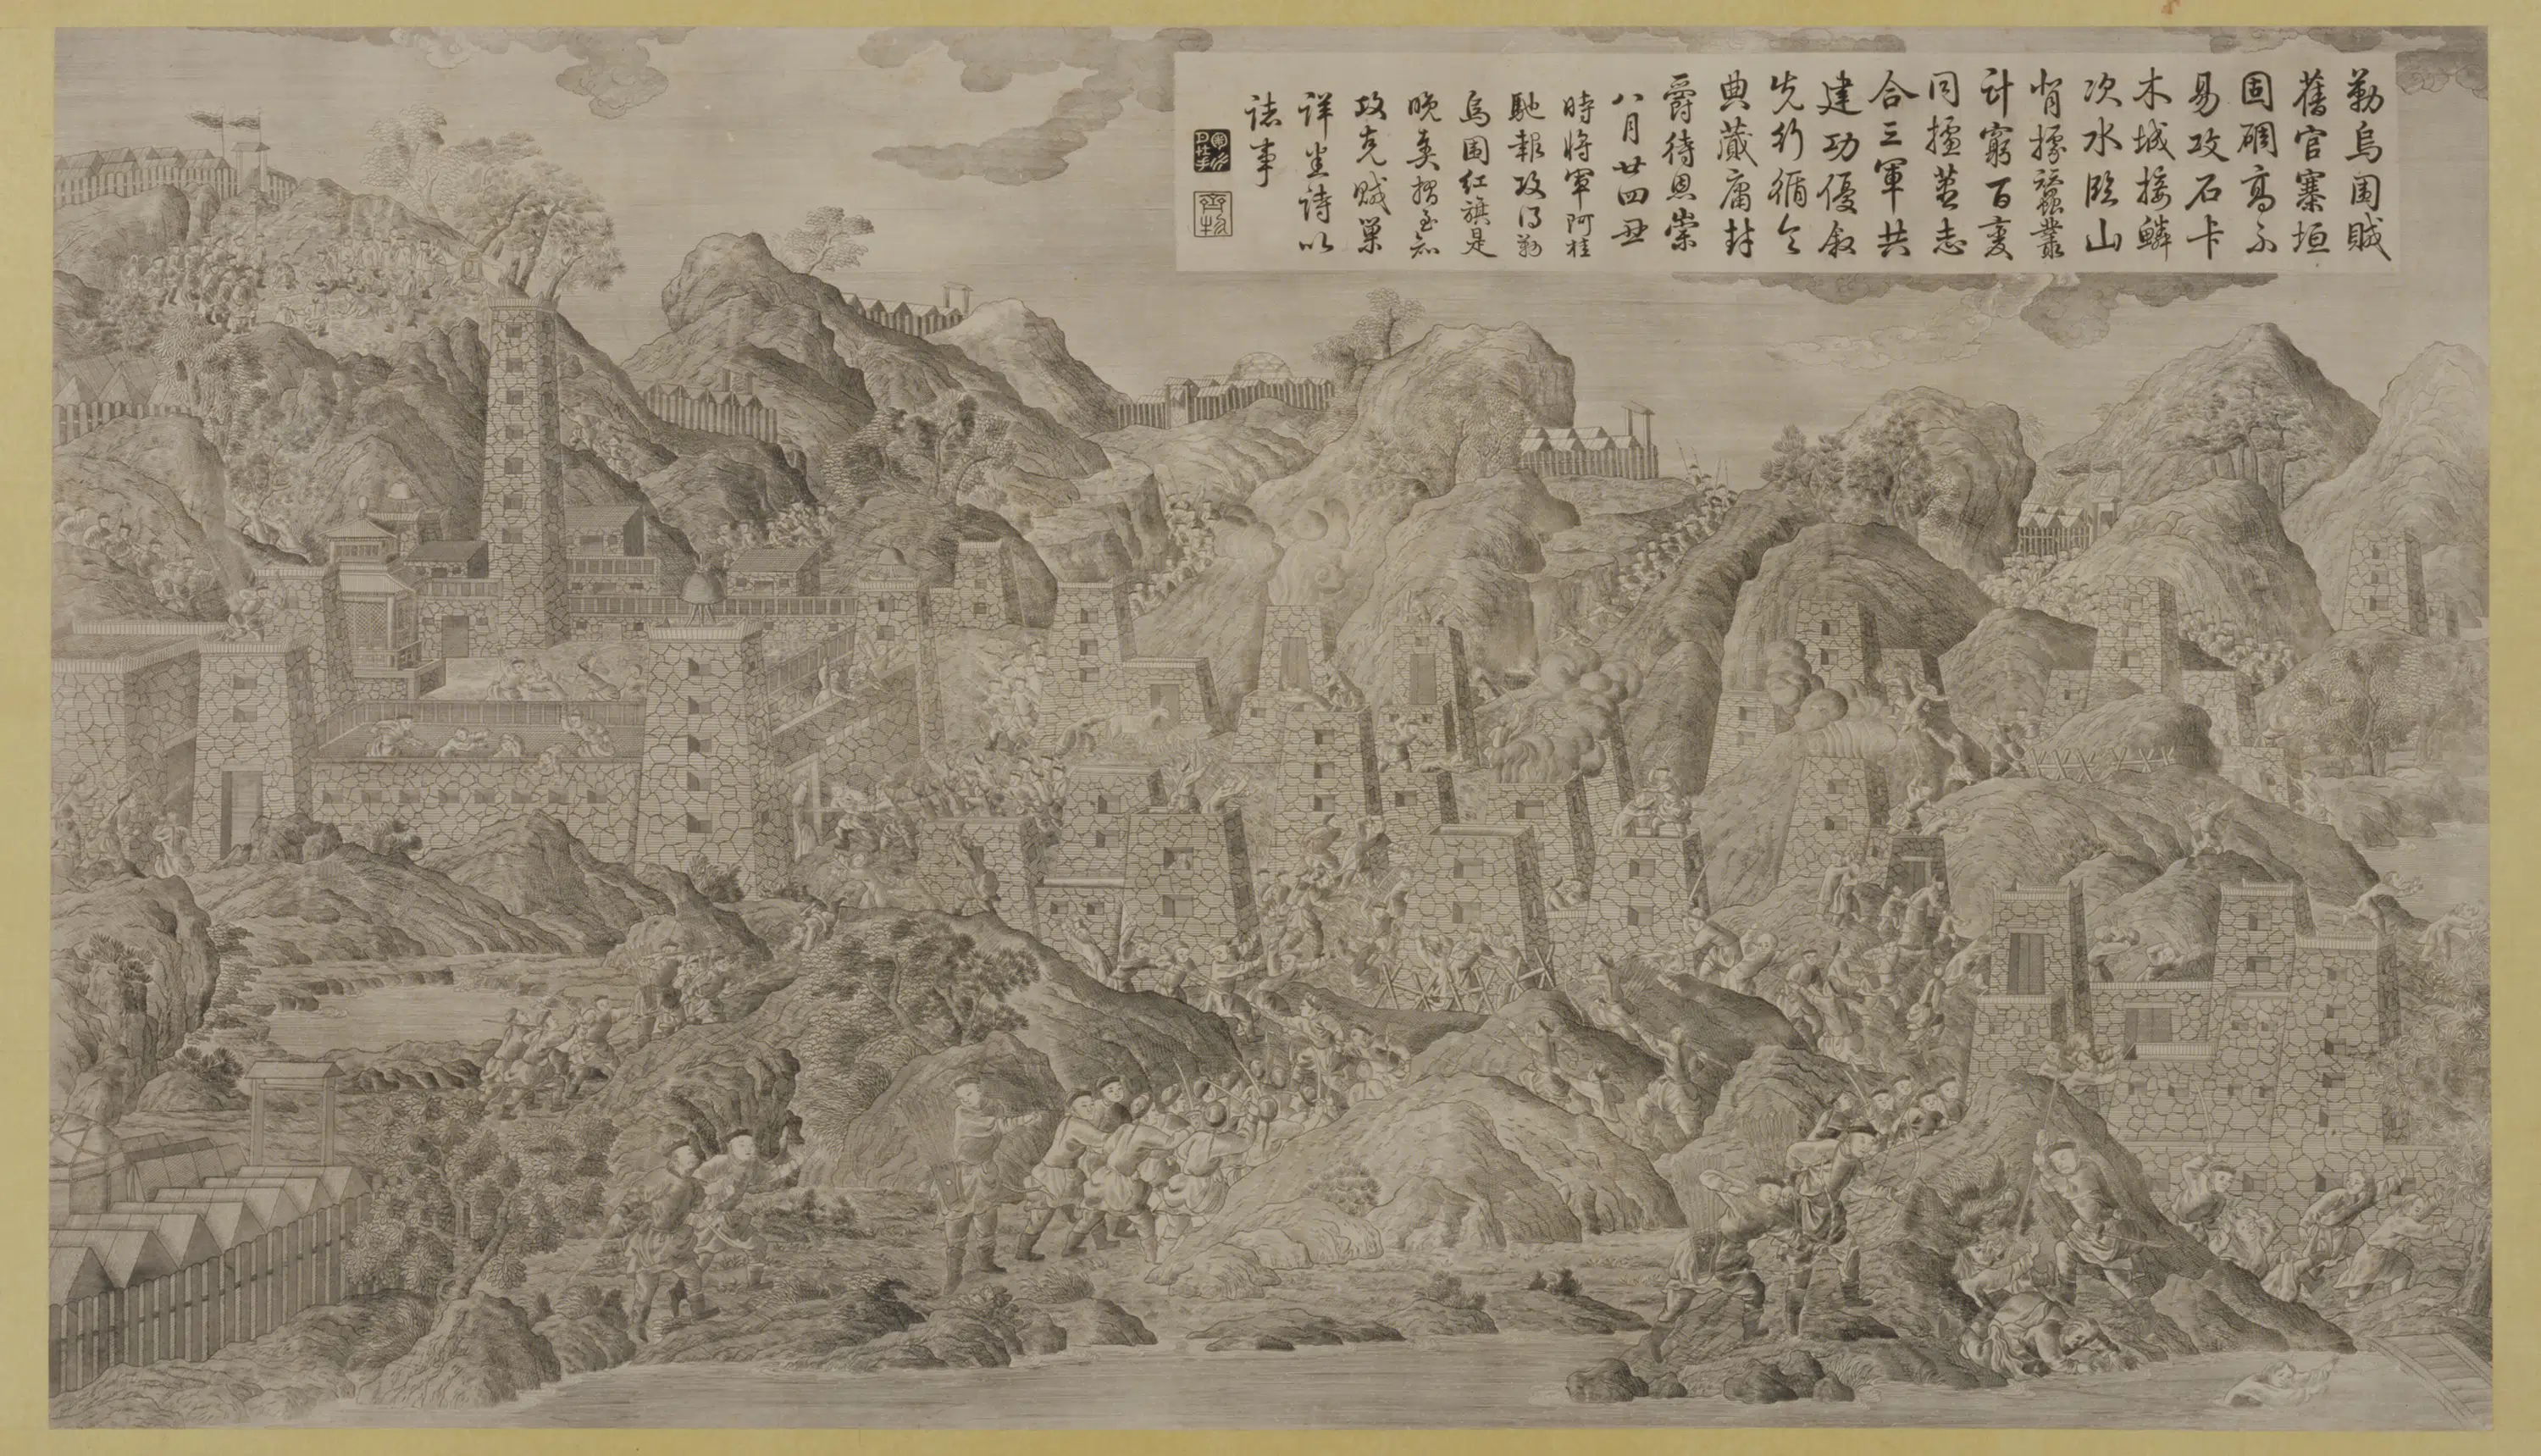 勒烏圍賊
舊官寨垣
固碉高不
易攻石卡
木城接鱗
次水臨山
背據蠶叢
計窮百變
同擒蓋志
合三軍共
建功優敘
先行循令
典蕆庸封
爵待恩崇
八月廿四丑
時將軍阿桂
馳報攻得勒
烏圍紅旗是
晚奏摺至知
攻克賊巢
詳悉詩以
誌事